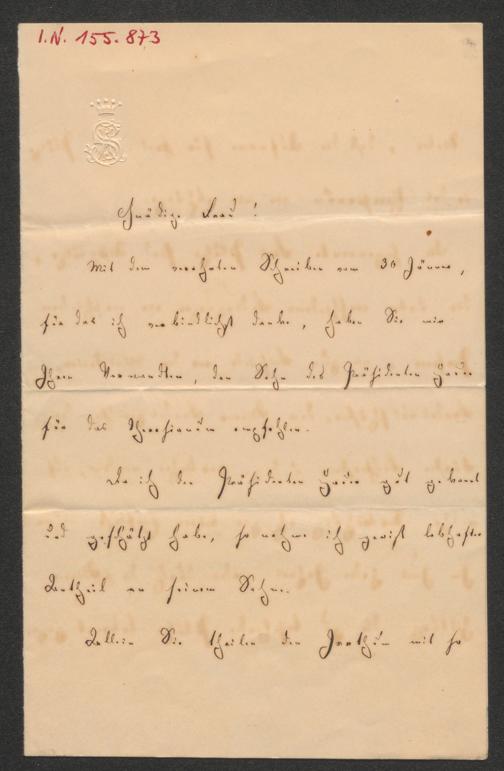 I.N. 155.873
Gnädige Frau!
Mit dem verehrten Schreiben vom 30 Jänner,
für das ich verbindlichst danke, haben Sie mir
Ihren Verwandten, den Sohn des Präsidenten
für das Theresianum empfohlen.
Da ich den Präsidenten gut gekannt
und geschätzt habe, so nehme ich gewiß lebhaften
Antheil an seinem Sohne.
Allein Sie theilen den Irrthum mit so